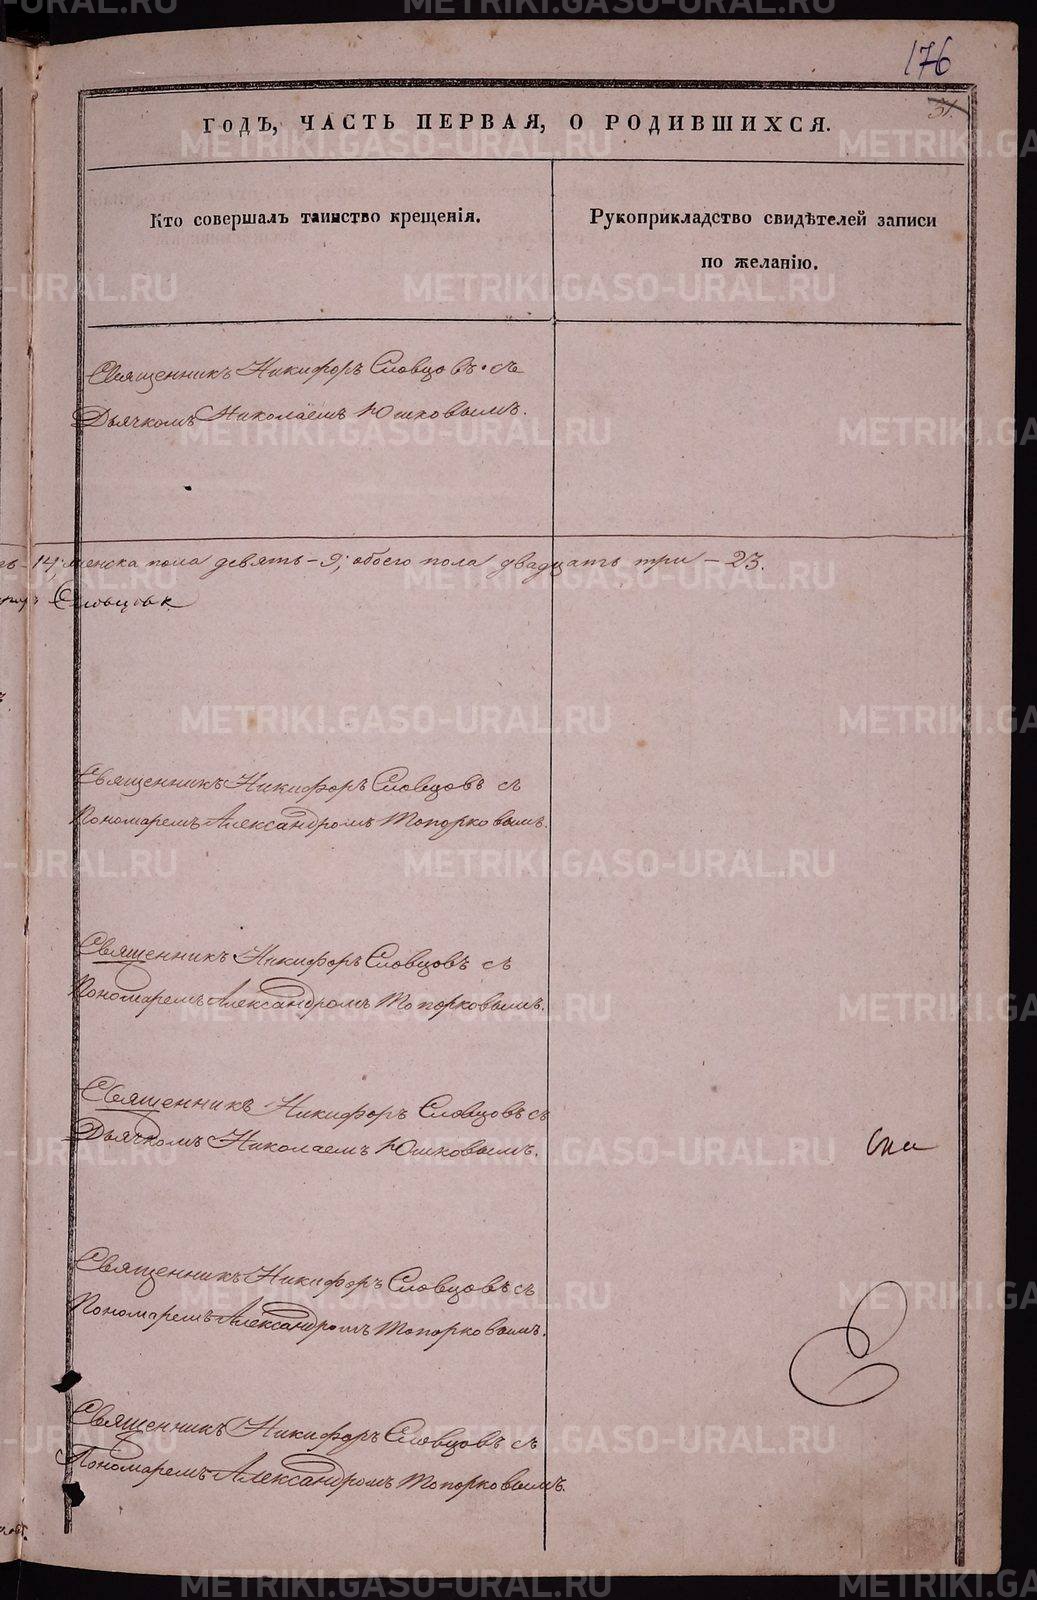 176
31.
ГОДЪ, ЧАСТЬ ПЕРВАЯ, О РОДИВШИХСЯ.
Кто совершалъ таинство крещенія.
Рукоприкладство свидѣтелей записи
по желанію.
Священникъ Никифоръ Словцовъ съ
Дьячкомъ Николаемъ Юшковымъ.
14, женска пола девять – 9; обоего пола двадцать три – 23.
Словцовъ
Священникъ Никифоръ Словцовъ съ
Пономаремъ Александромъ Топорковымъ.
Священникъ Никифоръ Словцовъ съ
Пономаремъ Александромъ Топорковымъ.
Священникъ Никифоръ Словцовъ съ
Дьячкомъ Николаемъ Юшковымъ.
Священникъ Никифоръ Словцовъ съ
Пономаремъ Александромъ Топорковымъ.
Священникъ Никифоръ Словцовъ съ
Пономаремъ Александромъ Топорковымъ.
METRIKI.GASO-URAL.RU